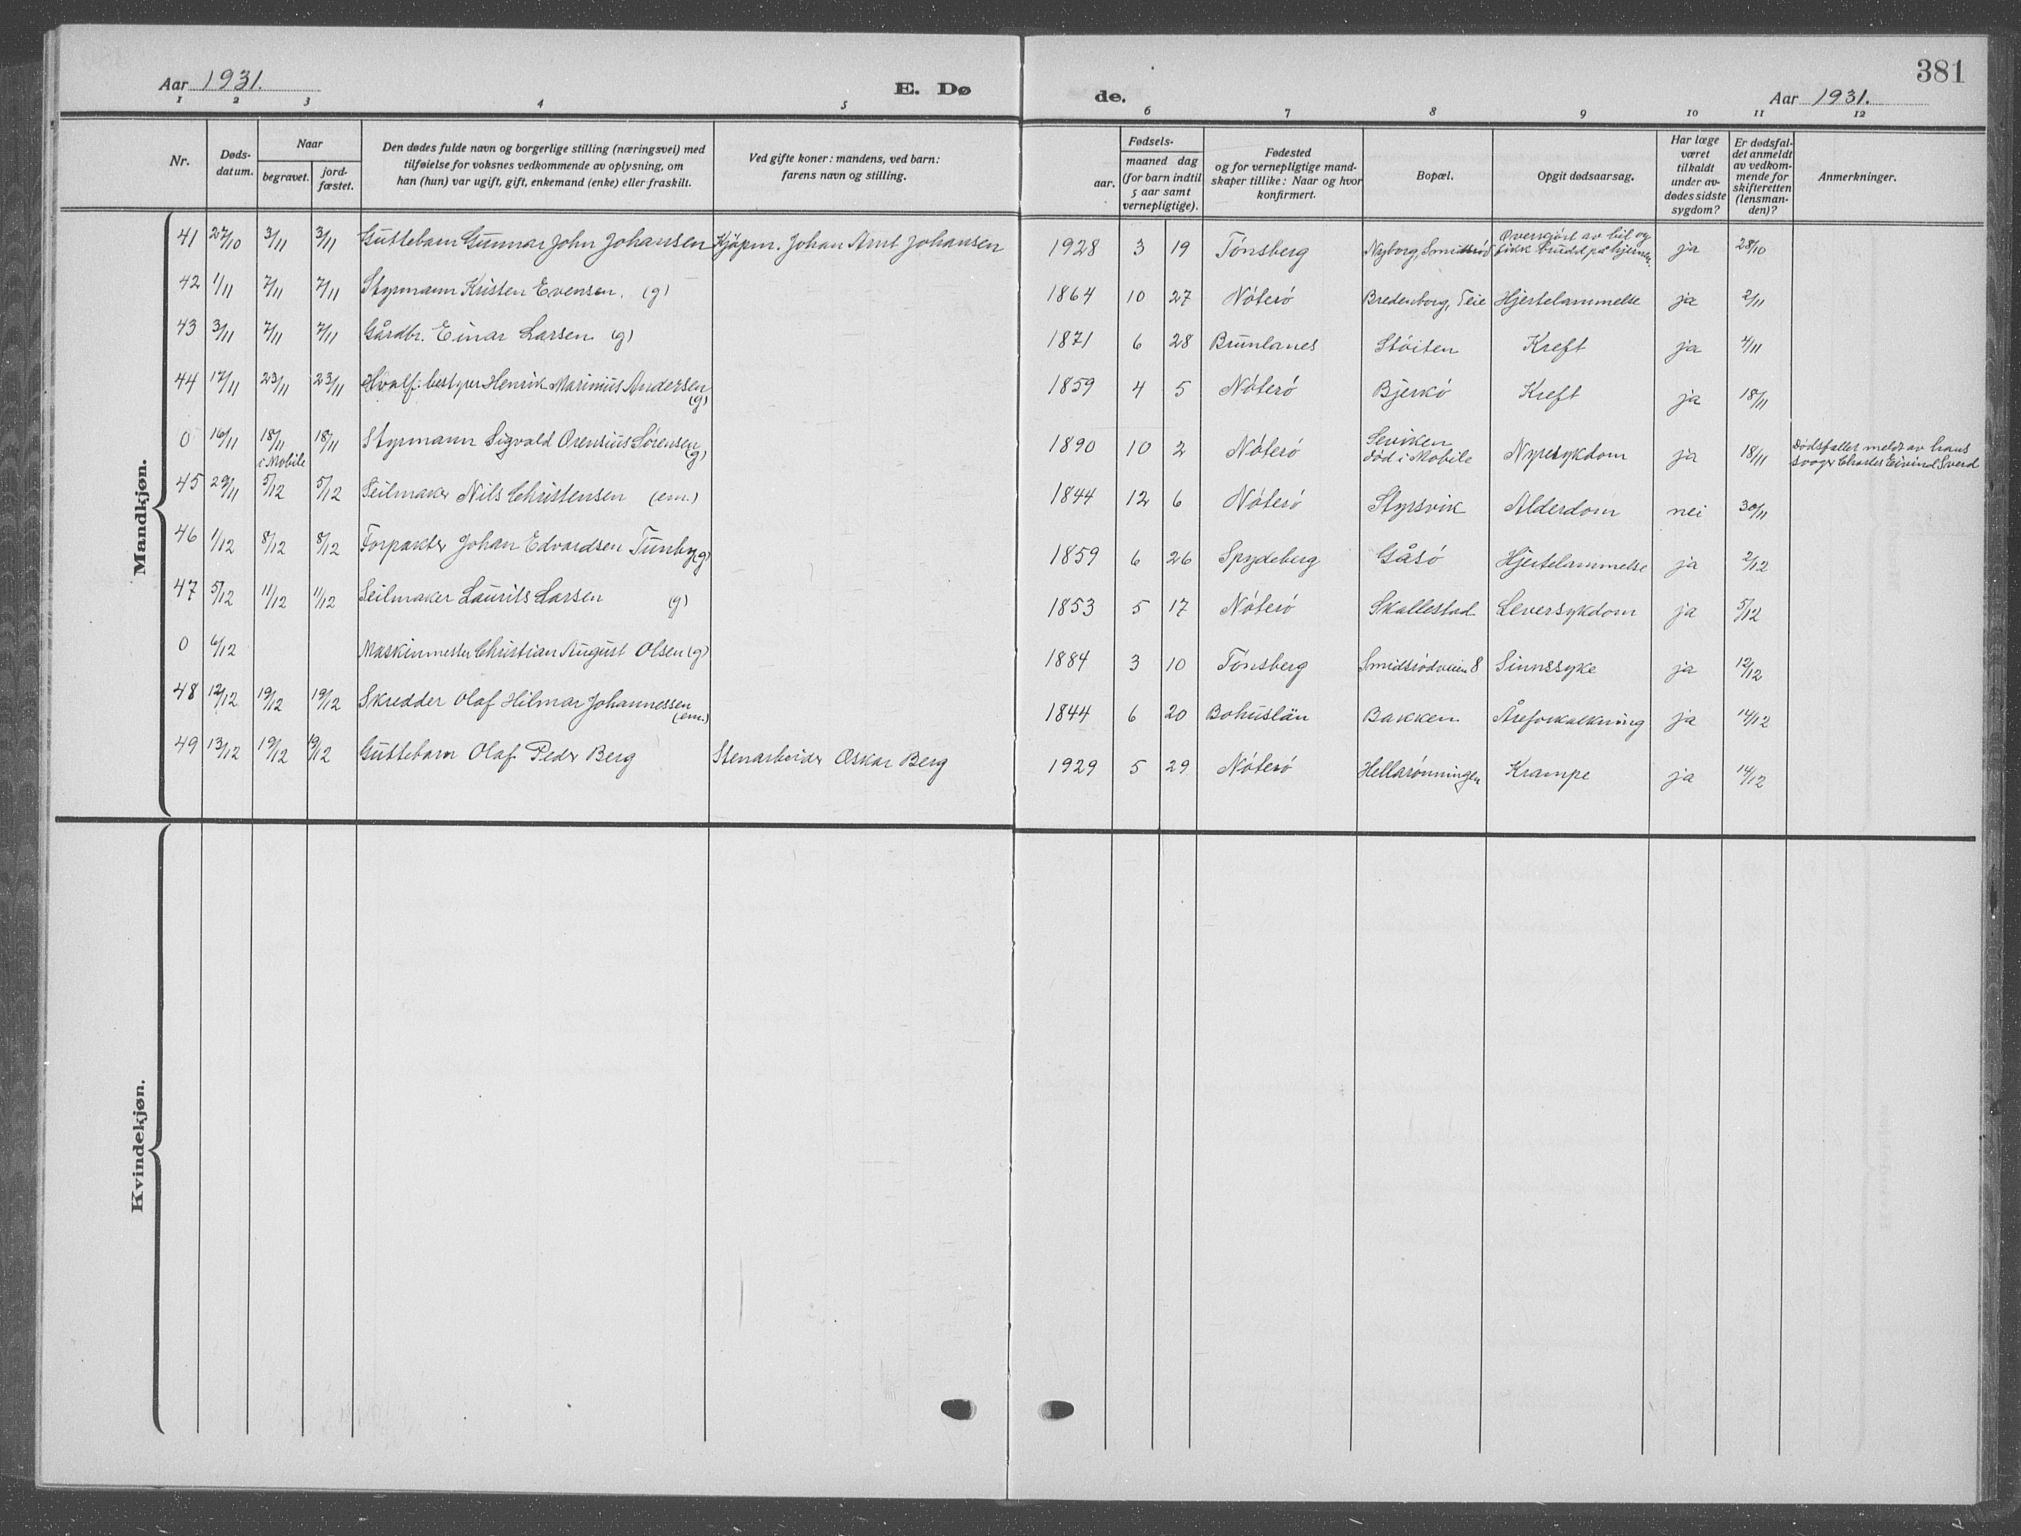 381
Aar 1931.
E. Dø
de.
Aar 1931.
1 2 3 4 5 6 7 8 9 10 11 12
Nr.
Døds-
datum.
Naar
begravet.
jord-
fæstet.
Den dødes fulde navn og borgerlige stilling (næringsvei) med
tilføielse for voksnes vedkommende av oplysning, om
han (hun) var ugift, gift, enkemand (enke) eller fraskilt.
Ved gifte koner: mandens, ved barn:
farens navn og stilling.
Fødsels-
aar.
maaned dag
(for barn indtil
5 aar samt
vernepligtige).
Fødested
og for vernepligtige mand-
skaper tillike: Naar og hvor
konfirmert.
Bopæl.
Opgit dødsaarsag.
Har læge
været
tilkaldt
under av-
dødes sidste
sygdom?
Er dødsfal-
det anmeldt
av vedkom-
mende for
skifteretten
(lensman-
den)?
Anmerkninger.
Mandkjøn.
41 27/10 3/11 3/11 Guttebarn Gunnar John Johansen Kjøpm. Johan Arnt Johansen 1928 3 19 Tønsberg Nyborg, Smidsrød Overkjørt av bil og fikk brudd på hjernesk. ja 28/10
42 1/11 7/11 7/11 Styrmann Kristen Evensen. (g) 1864 10 27 Nøterø Bredenborg, Teie Hjertelammelse ja 2/11
43 3/11 7/11 7/11 Gårdbr. Einar Larsen (g) 1871 6 28 Brunlanes Støiten Kreft ja 4/11
44 17/11 23/11 23/11 Hvalf. bestyrer Henrik Marinius Andersen (g) 1859 4 5 Nøterø Bjerkø Kreft ja 18/11
0 16/11 18/11 i Mobile 18/11 Styrmann Sigvald Orensius Sørensen (g) 1890 10 2 Nøterø Seviken død i Mobile Nyresykdom ja 18/11 Dødsfallet meldt av hans svoger Charles Eivind Sverd
45 29/11 5/12 5/12 Seilmaker Nils Christensen (em.) 1844 12 6 Nøterø Styrsvik Alderdom nei 30/11
46 1/12 8/12 8/12 Forpakter Johan Edvardsen Tunby (g) 1859 6 26 Spydeberg Gåsø Hjertelammelse ja 2/12
47 5/12 11/12 11/12 Seilmaker Laurits Larsen (g) 1853 5 17 Nøterø Skallestad Leversykdom ja 5/12
0 6/12 Maskinmester Christian August Olsen (g) 1884 3 10 Tønsberg Smidsrødveien 8 Sinnssyke ja 12/12
48 12/12 19/12 19/12 Skredder Olaf Hilmar Johannessen (em.) 1844 6 20 Bohuslän Bakken Åreforkalkning ja 14/12
49 13/12 19/12 19/12 Guttebarn Olaf Peder Berg Stenarbeider Oskar Berg 1929 5 29 Nøterø Hellarønningen Krampe ja 14/12
Kvindekjøn.